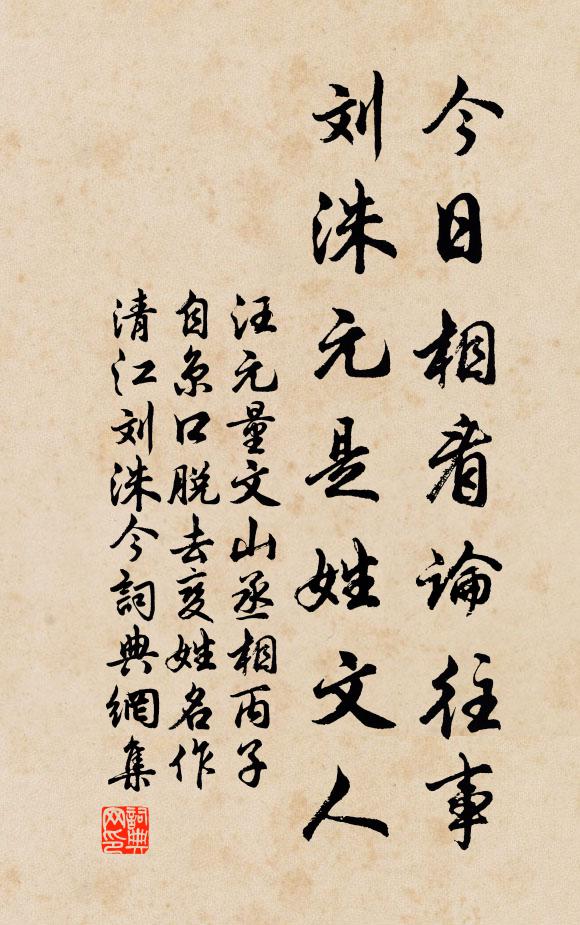 今日相看論往事
刘洙元是姓文人
汪元量文山丞相丙子
自京口脱去变姓名作
清江刘洙今詞典網集
詞典网印